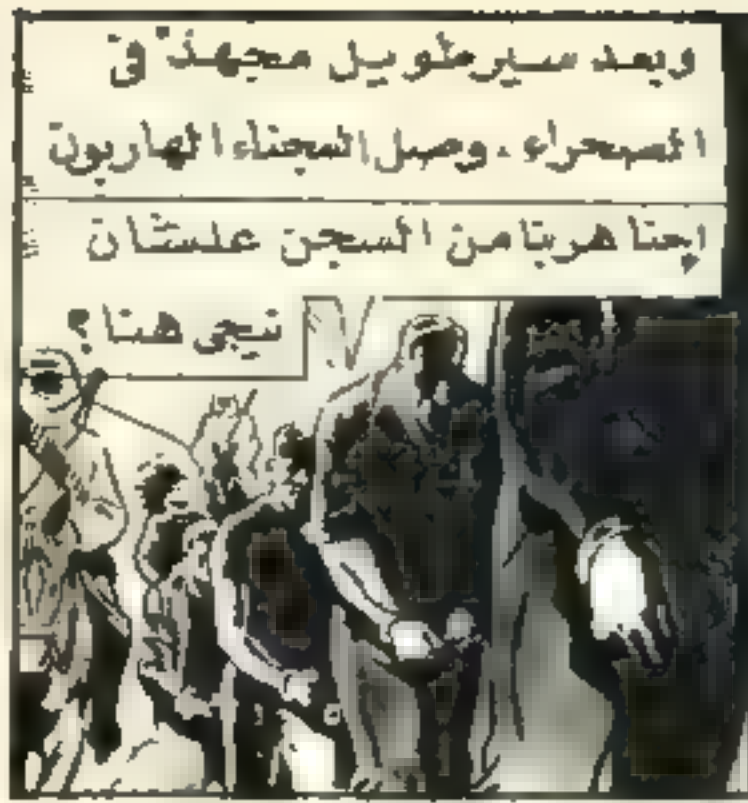 وبعد سير طويل مجهد في
الصحراء . وصل السجناء الهاربون
إحنا هربنا من السجن علشان
نيجى هنا ؟